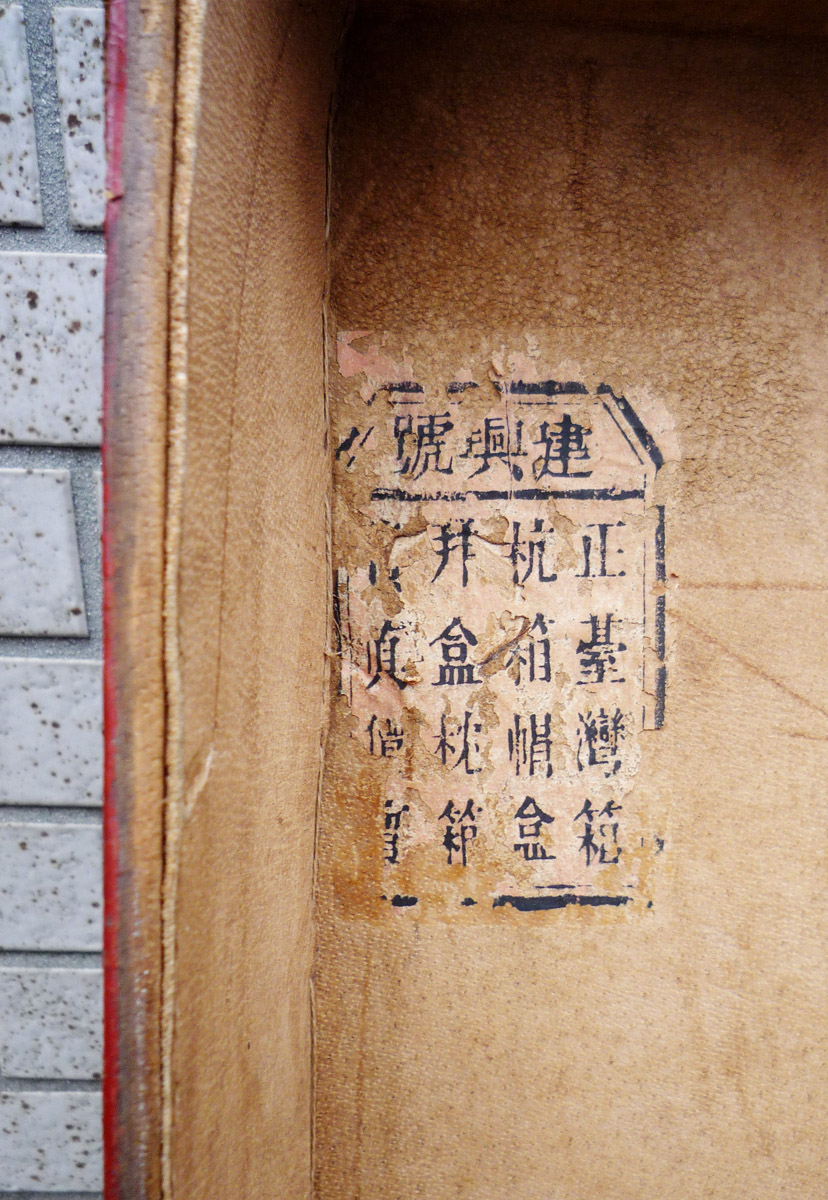 建興號
正臺灣箱
杭箱帽盒
拜盒枕箱
真